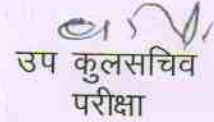 उप कुलसचिव
परीक्षा